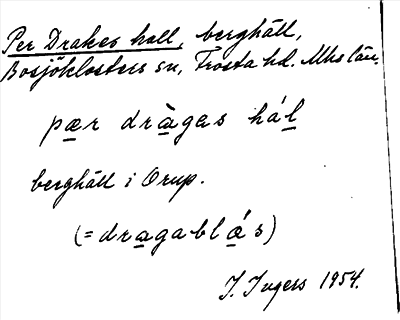 Per Drakes hall, berghäll,
Bosjöklosters sn, Frosta hd. Mhs län.
pær dràgas hál
berghäll i Orup.
(= dragablás)
I. Ingers 1954.